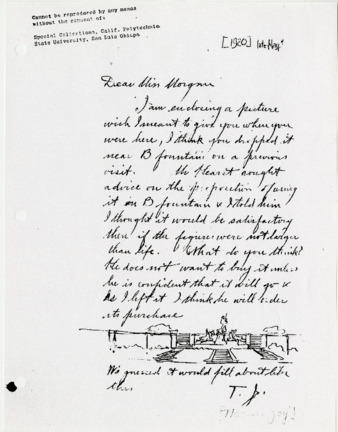 Cannot be reproduced by any means
without the consent of:
Special Collections, Calif. Polytechnic
State University, San Luis Obispo
[1920]
Dear Miss Morgan
I am enclosing a picture
wich I meant to give you when you
were here, I think you dropped it
near B fountain on a previous
visit. Mr Hearst sought
advice on the proposition of using
it on B fountain & I told him
I thought it would be satisfactory
then if the figures were not larger
than life. What do you think?
He does not want to buy it unless
he is confident that it will go &
As I left it I think he will order
its purchase
We guessed it would fill about like
this
T. J.